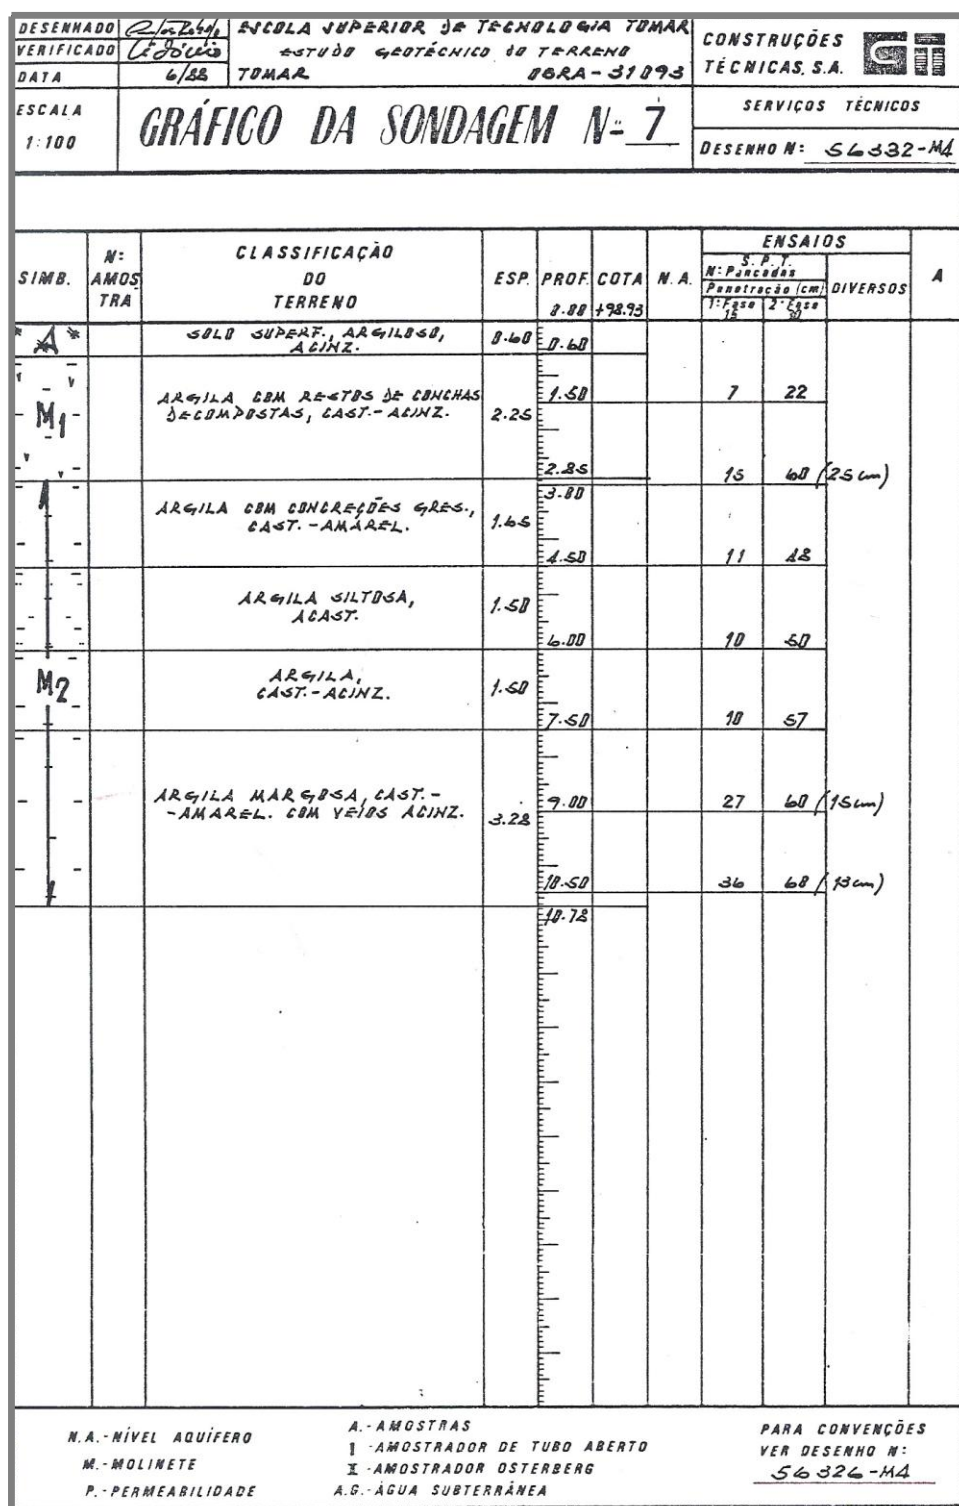 DESENHADO
VERIFICADO
DATA 6/88
ESCOLA SUPERIOR DE TECNOLOGIA TOMAR
ESTUDO GEOTÉCNICO DO TERRENO
TOMAR OBRA-31093
CONSTRUÇÕES
TÉCNICAS, S.A.
ESCALA
1:100
GRÁFICO DA SONDAGEM Nº 7
SERVIÇOS TÉCNICOS
DESENHO Nº: 56332-MA
SIMB.
Nº AMOSTRA
CLASSIFICAÇÃO
DO
TERRENO
ESP.
PROF.
0.00
COTA
+98.93
N.A.
ENSAIOS
S.P.T.
Nº Pancadas
Penetração (cm)
1ª Fase 15
2ª Fase 30
DIVERSOS
A
A SOLO SUPERF., ARGILOSO, ACINZ. 0.60 0.60
M1 ARGILA COM RESTOS DE CONCHAS
DECOMPOSTAS, CAST.-ACINZ. 2.25
1.50 7 22
2.85 15 60 (25cm)
3.00
ARGILA COM CONCREÇÕES GRES.,
CAST.-AMAREL. 1.65
4.50 11 48
ARGILA SILTOSA,
ACAST. 1.50
6.00 10 50
M2 ARGILA,
CAST.-ACINZ. 1.50
7.50 18 57
ARGILA MARGOSA, CAST.-
-AMAREL. COM VEIOS ACINZ. 3.28
9.00 27 60 (15cm)
10.50 36 68 (13cm)
10.78
N.A.-NÍVEL AQUÍFERO
M.-MOLINETE
P.-PERMEABILIDADE
A.-AMOSTRAS
-AMOSTRADOR DE TUBO ABERTO
-AMOSTRADOR OSTERBERG
A.G.-ÀGUA SUBTERRÂNEA
PARA CONVENÇÕES
VER DESENHO Nº:
56326-MA